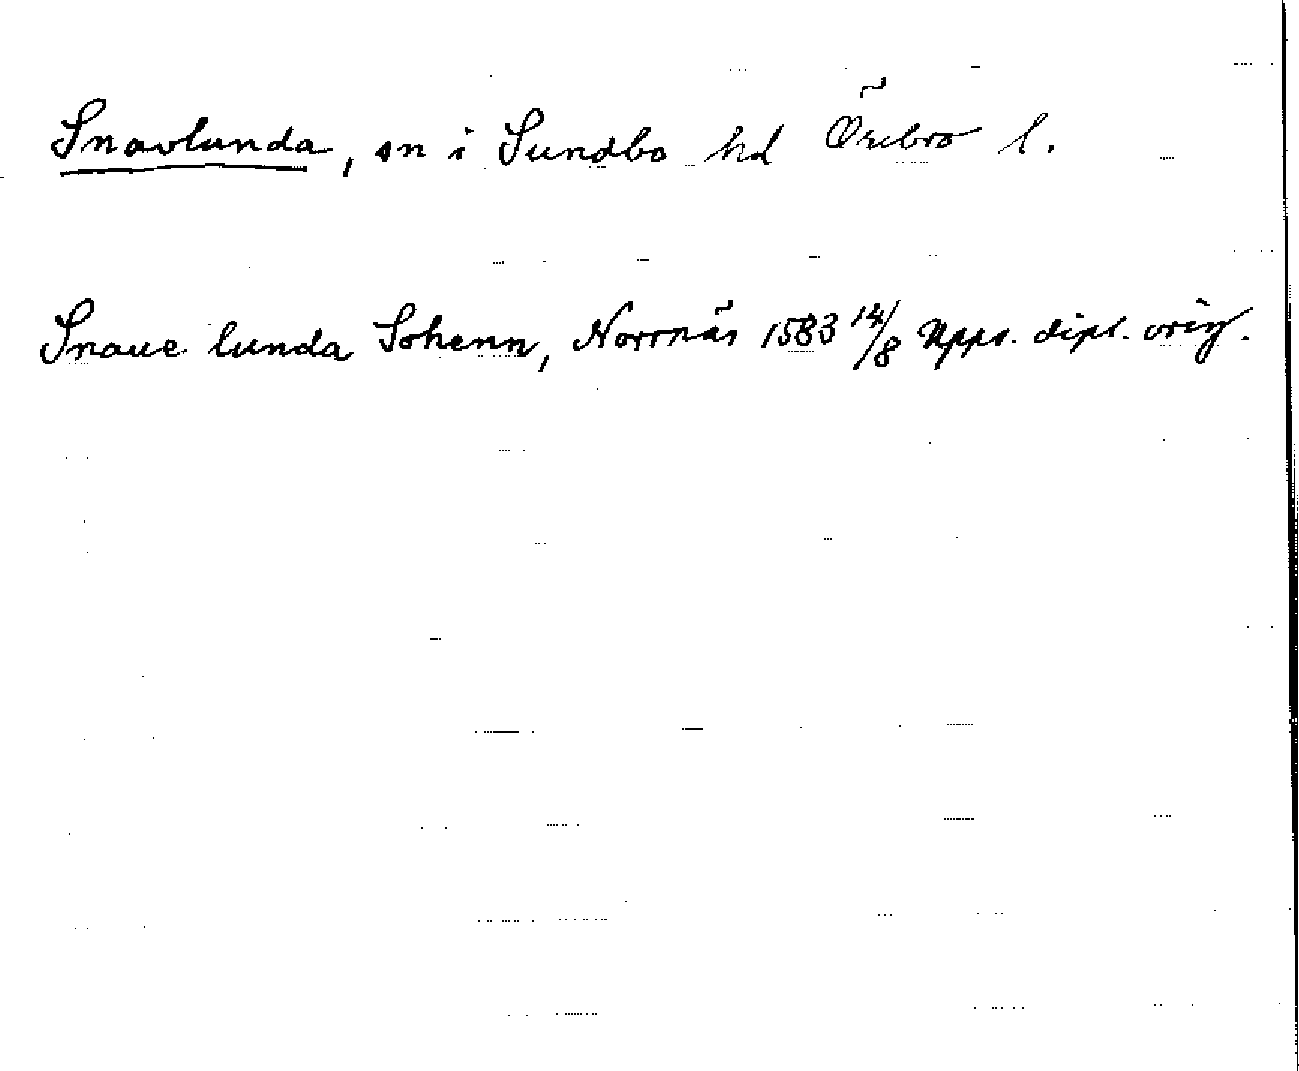 Snavlunda, sn i Sundbo hd Örebro l.
Snaue lunda Sohenn, Norrnäs 1583 14/8 Upps. dipl. orig.